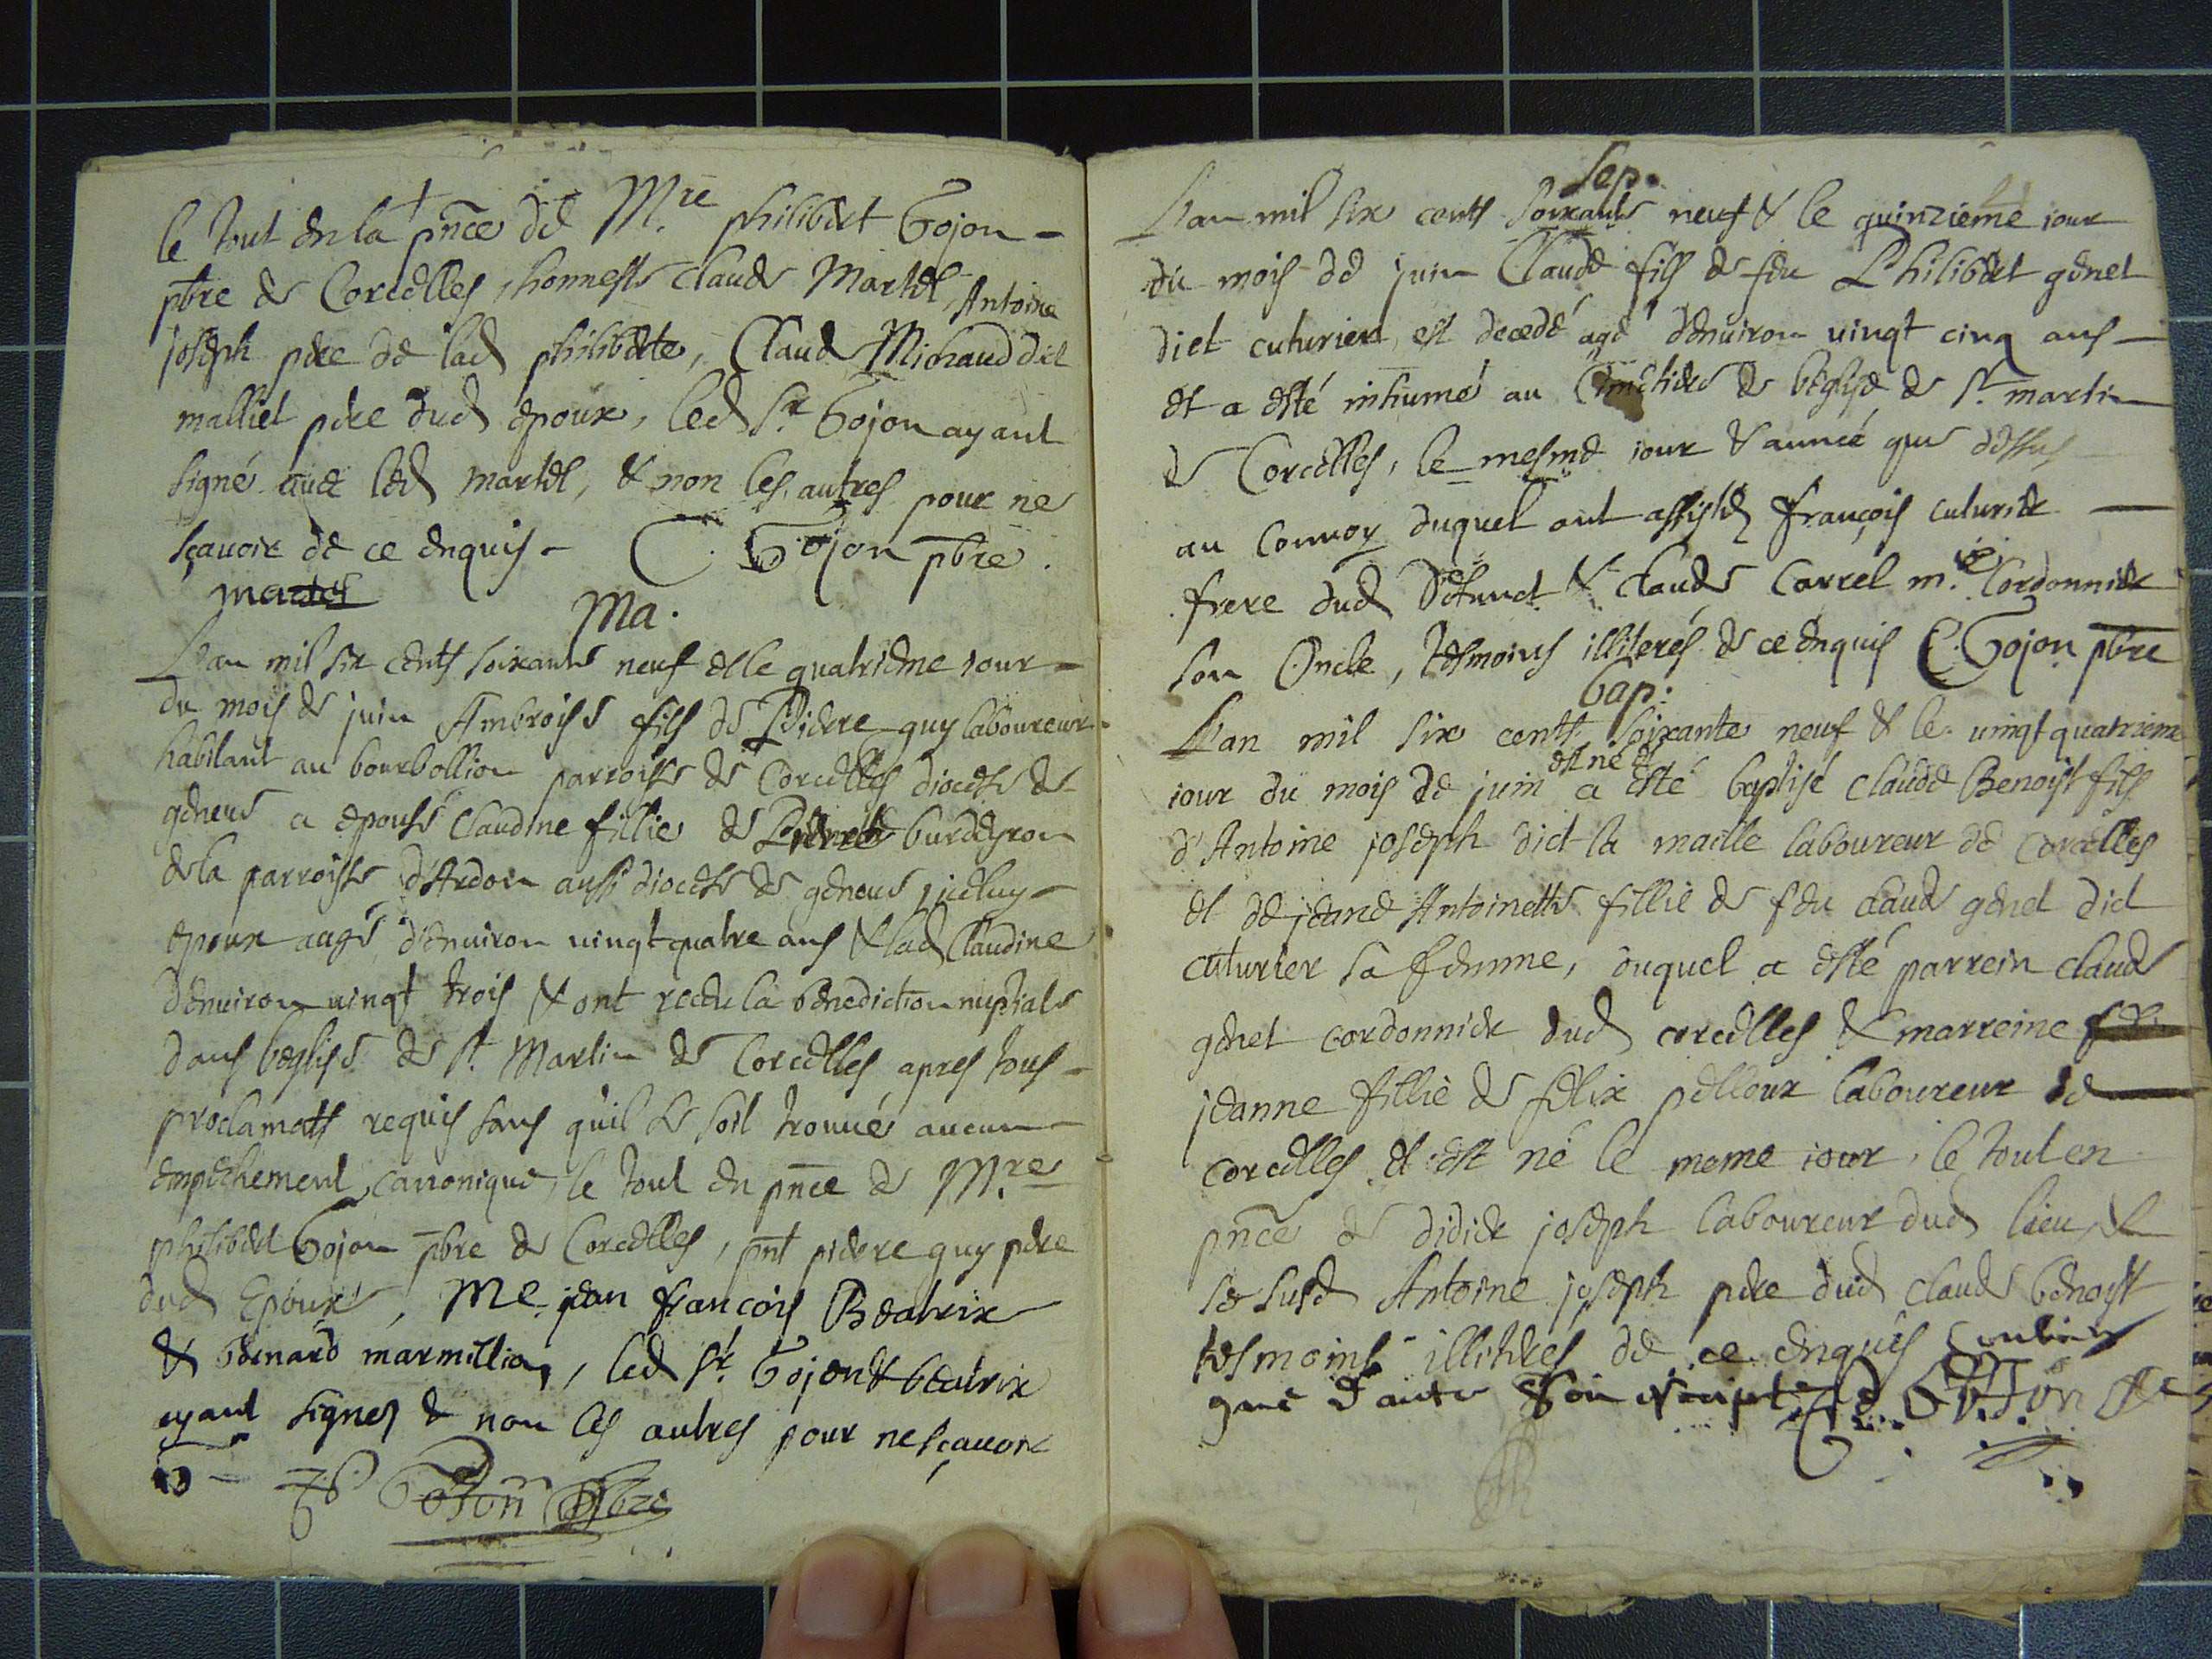 le tout en la pn̄ce de Mre philibert Gojon
pbre de Corcelles, honneste claude Martel, Antoine
joseph pere de lad philiberte, Claude Michaud dit
malliet pere dud epoux, led Sr Gojon ayant
signé avec led martel, & non les autres pour ne
sçavoir de ce enquis - C. Gojon pbre.
martel
Ma.
L'an mil six cents soixante neuf et le quatrieme iour
du mois de juin Ambroise fils de Pierre guy laboureur
habitant au bourbollion parroisse de Corcelles diocese de
geneve a epousé claudine fillie de Pierre burdeyron
de la parroisse d'Ardoin aussi diocese de geneve, iceluy
epoux aagé d'environ vingt quatre ans & lad Claudine
d'environ vingt trois & ont receu la benediction nuptiale
dans l'eglise de St Martin de Corcelles apres tous
proclamats requis sans quil se soit trouvé aucun
empechement canonique, le tout en pn̄ce de Mre
philibert Gojon pbre de Corcelles, pnt pierre guy pere
dud Epoux, Me jean françois Beatrix
& bernard marmillion, led Sr Gojon & beatrix
ayant signez & non les autres pour ne sçavoir
Gojon pbre
Sep.
L'an mil six cents soixante neuf & le quinzieme iour
du mois de juin Claude fils de feu Philibert genet
dict cuturier, est decedé agé d'environ vingt cinq ans
et a esté inhumé au Cimetiere de l'eglise de St martin
de Corcelles, le mesme iour & année que dessus
au Convoy duquel ont assistez françois cuturier
frere dud Defunct & claude Carrel m.e Cordonnier
son Oncle, tesmoins illiterés de ce enquis C. Gojon pbre
bap:
L'an mil six cents soixante neuf & le vingt quatrieme
iour du mois de juin est né et a esté baptisé claude Benoist fils
d'Antoine joseph dict la maille laboureur de Corcelles
et de jeane Antoinette fillie de feu claude genet dict
cuturier sa femme, duquel a esté parrein claude
genet cordonnier dud corcelles & marreine
jeanne fillie de felix pelloux laboureur de
corcelles et est né le meme iour, le tout en
pn̄ce de didier joseph laboureur dud lieu &
le susd Antoine joseph pere dud claude benoist
tesmoins illiteres de ce enquis
Gojon